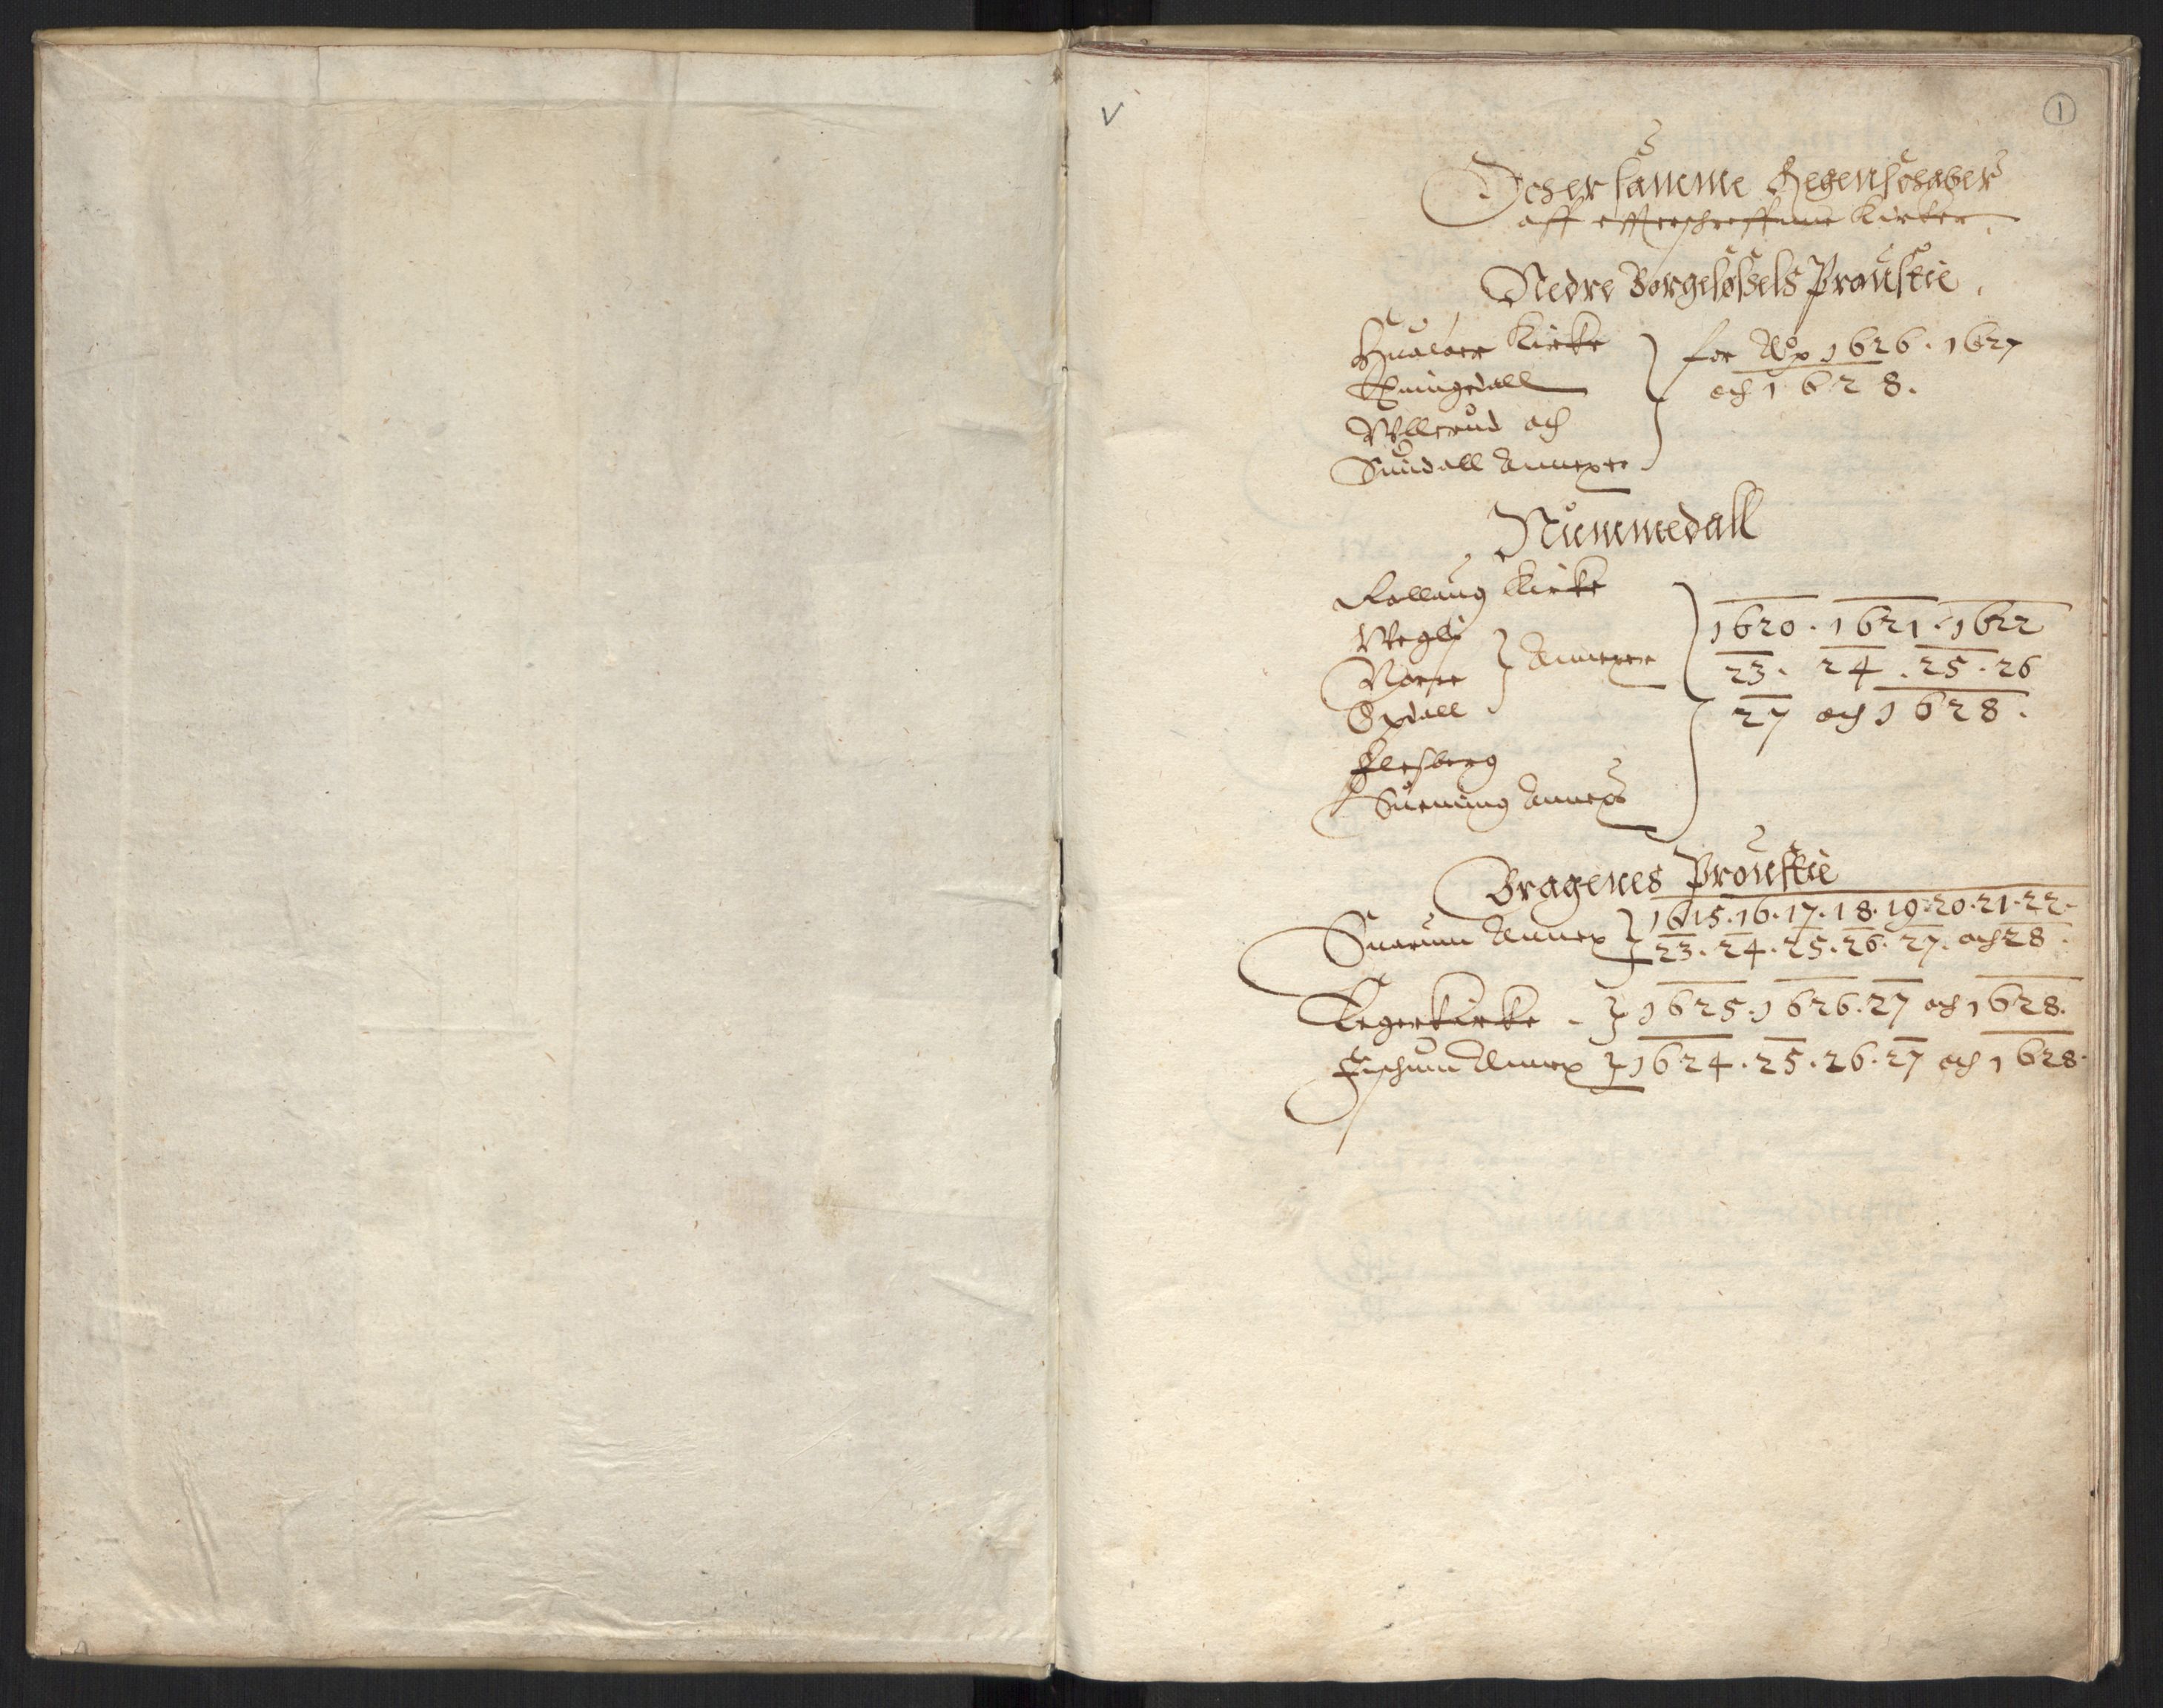 1
Desersamme Regenschaber
aff effterschreffune Kirker.
Nedre Borgesøssels Proustie.
Hualøer Kircke
Eningdall
Wllerud och
Sundall Annexer
for A°p 1626. 1627
och 1628.
Nummedall
Rollaug Kircke
Weglj
Norre
Opdall
Annexer
Flesberg
Suening Annex
1620. 1621. 1622
23. 24. 25. 26
27 och 1628.
Bragenes Proustie
Snarum Annex 1615. 16. 17. 18. 19. 20. 21. 22.
23. 24. 25. 26. 27. och 28.
Eegerkircke - 1625. 1626. 27 och 1628.
Fischum Annex 1624. 25. 26. 27 och 1628.